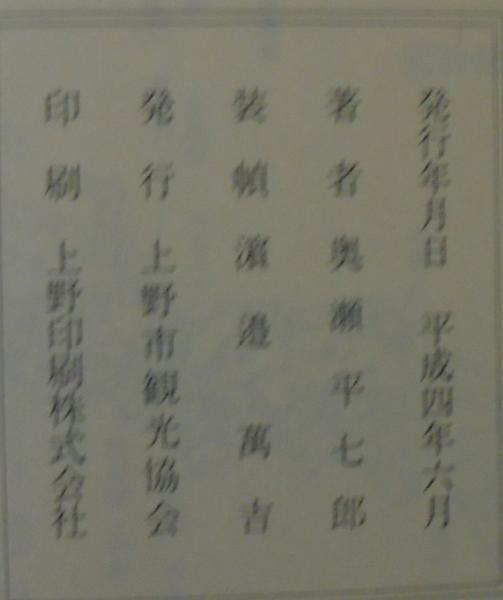 発行年月日 平成四年六月
著者 奥瀬平七郎
装幀 濵邉萬吉
発行 上野市観光協会
印刷 上野印刷株式会社